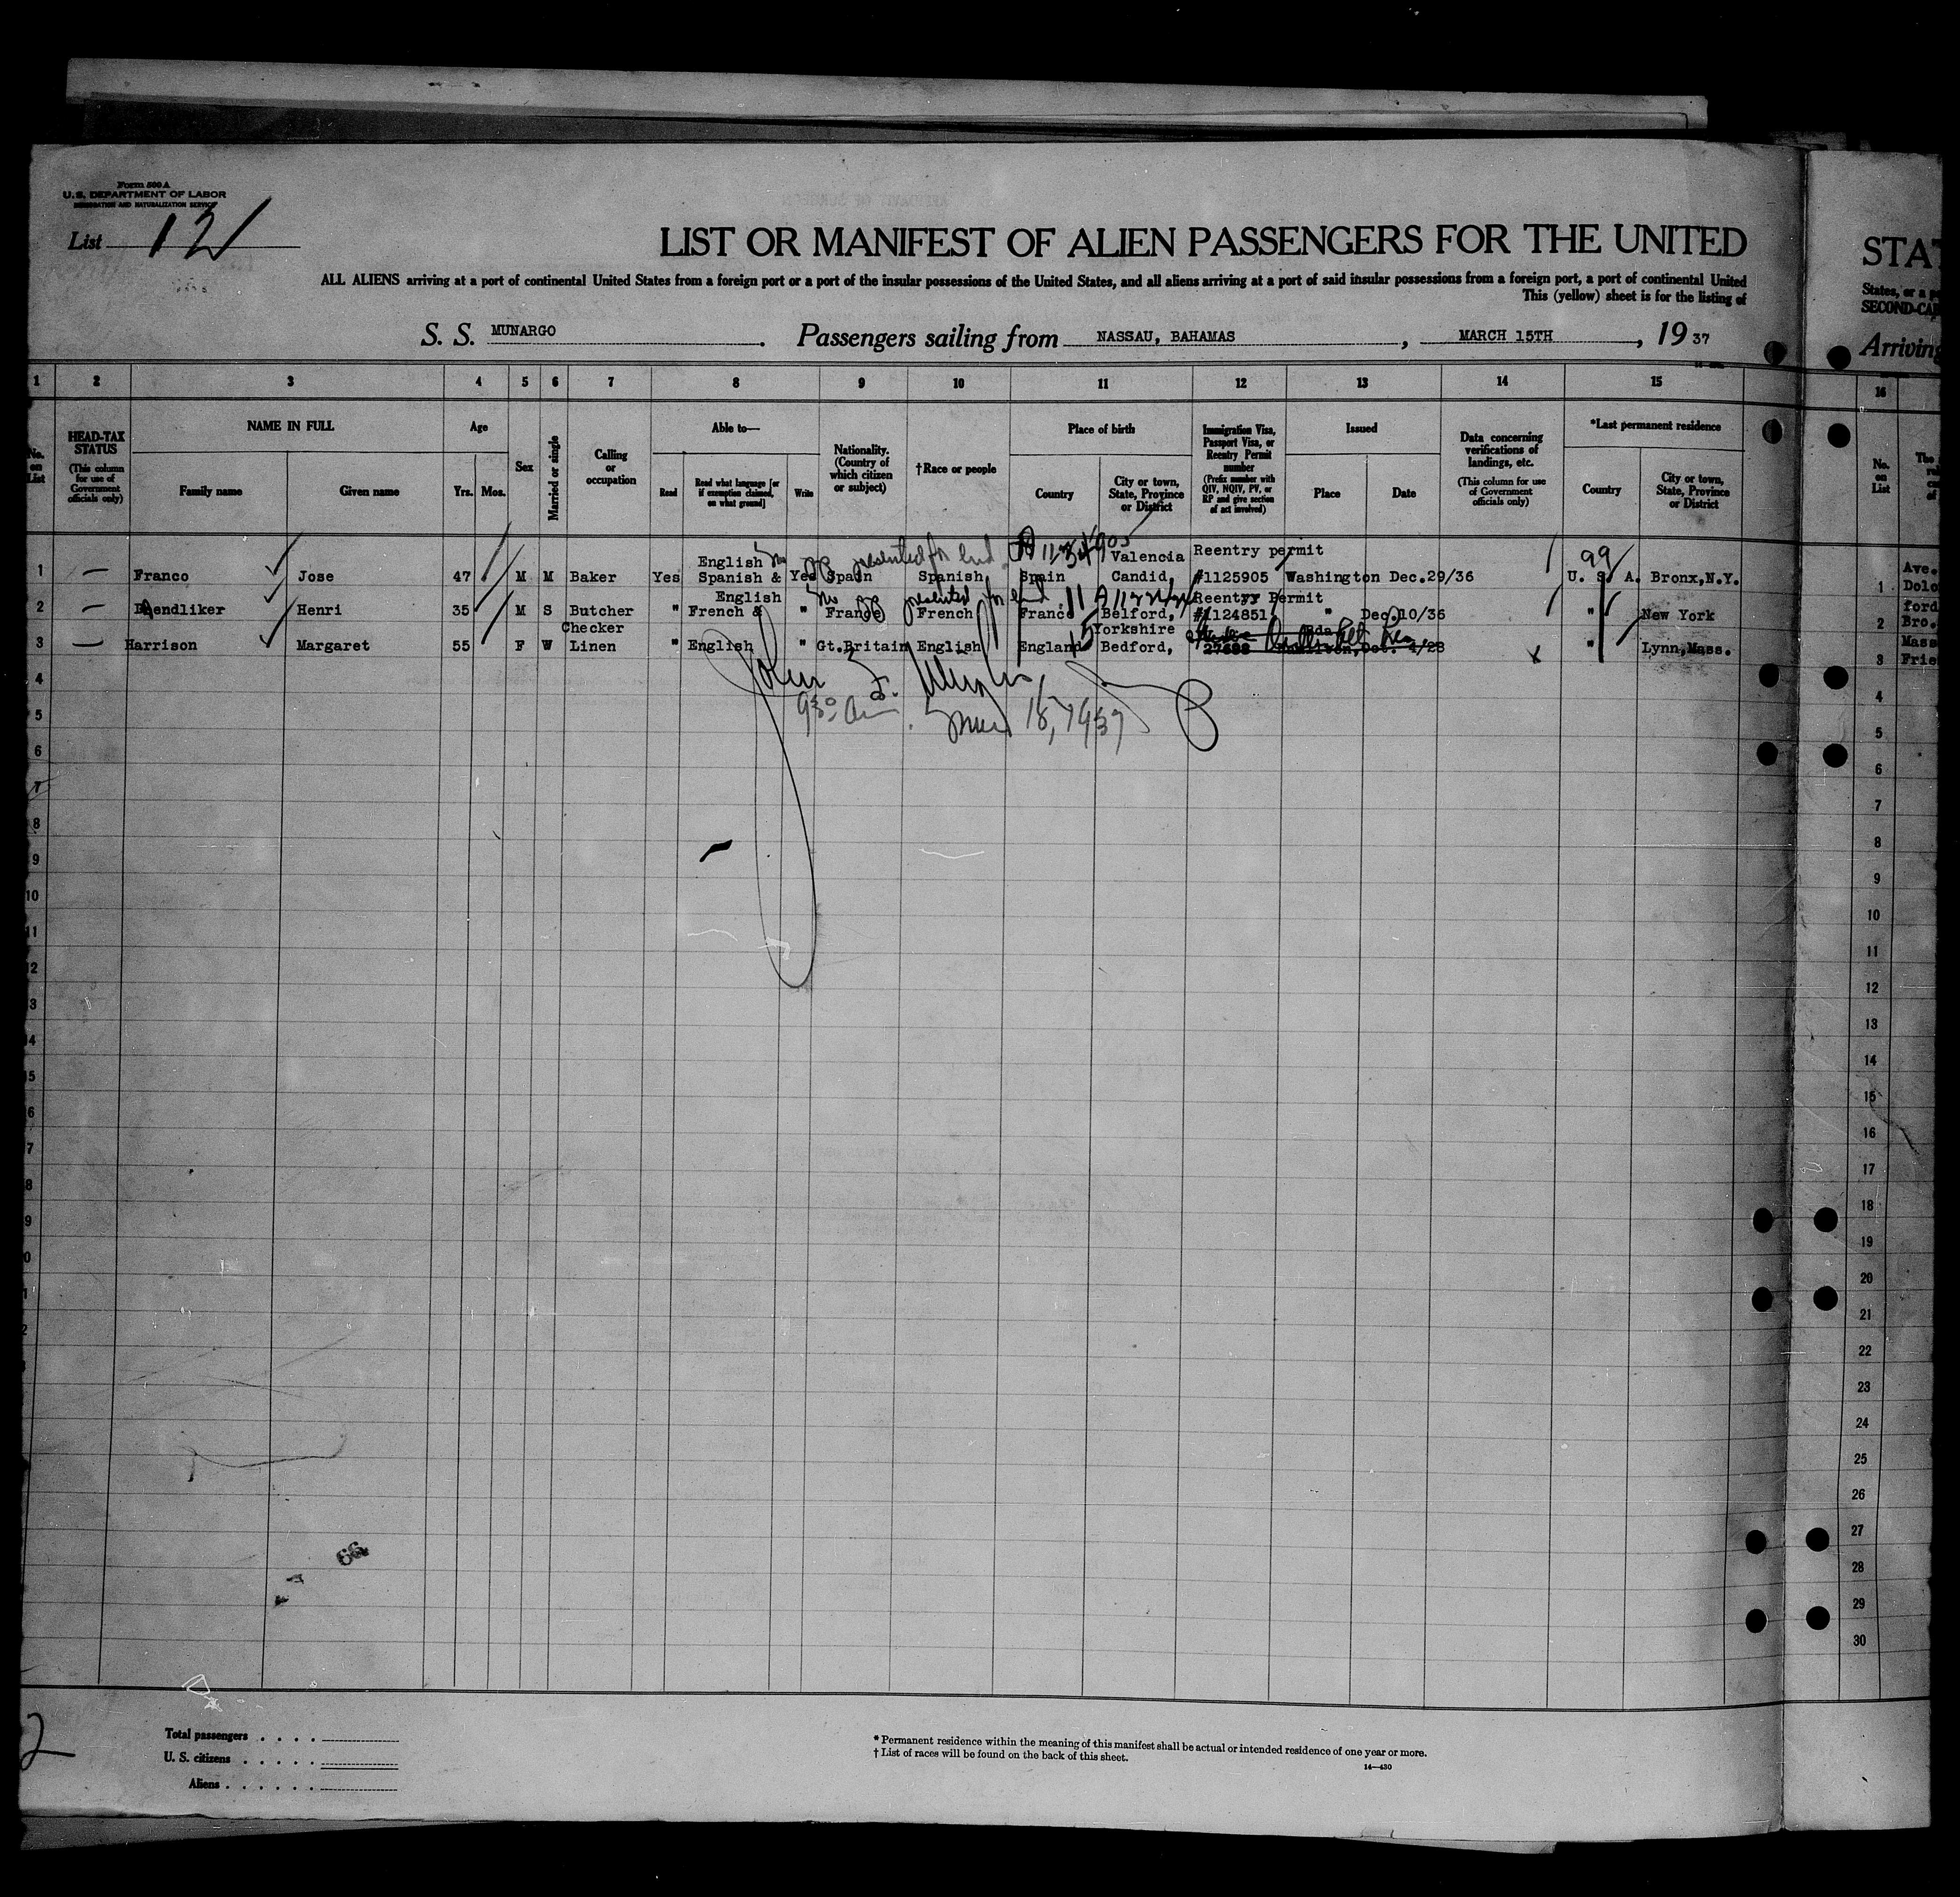 Form 500 A
U. S. DEPARTMENT OF LABOR
IMMIGRATION AND NATURALIZATION SERVICE
List 12
LIST OR MANIFEST OF ALIEN PASSENGERS FOR THE UNITED
STAT
ALL ALIENS arriving at a port of continental United States from a foreign port or a port of the insular possessions of the United States, and all aliens arriving at a port of said insular possessions from a foreign port, a port of continental United
States, or a
This (yellow) sheet is for the listing of
SECOND-CAB
S. S. MUNARGO. Passengers sailing from NASSAU, BAHAMAS, MARCH 15TH, 1937
Arriving
1 2 3 4 5 6 7 8 9 10 11 12 13 14 15 16
No. on List
HEAD-TAX STATUS (This column for use of Government officials only)
NAME IN FULL
Family name Given name
Age
Yrs. Mos.
Sex
Married or single
Calling or occupation
Able to—
Read
Read what language [or if exemption claimed, on what ground]
Write
Nationality. (Country of which citizen or subject)
†Race or people
Place of birth
Country
City or town, State, Province or District
Immigration Visa, Passport Visa, or Reentry Permit number (Prefix number with QIV, NQIV, PV, or RP and give section of act involved)
Issued
Place Date
Data concerning verifications of landings, etc. (This column for use of Government officials only)
*Last permanent residence
Country
City or town, State, Province or District
No. on List
presented for end.
English Valencia Reentry permit 99
1 Franco Jose 47 M M Baker Yes Spanish & Yes Spain Spanish Spain Candid, #1125905 Washington Dec.29/36 U. S. A. Bronx,N.Y.
English presented for end. Reentry Permit
2 Dendliker Henri 35 M S Butcher " French & " France French France Belford, #1124851 " Dec.10/36 " New York
Checker Yorkshire
3 Harrison Margaret 55 F W Linen " English " Gt.Britain English England Bedford, 27698 Oct. 4/28 " Lynn,Mass.
Ave.
1 Dolo
ford
2 Bro.
Mass
3 Frie
John F.
930 am. 18, 1937
4
5
6
7
8
9
10
11
12
13
14
15
16
17
18
19
20
21
22
23
24
25
26
27
28
29
30
66
2
Total passengers
U. S. citizens
Aliens
* Permanent residence within the meaning of this manifest shall be actual or intended residence of one year or more.
† List of races will be found on the back of this sheet.
14—430